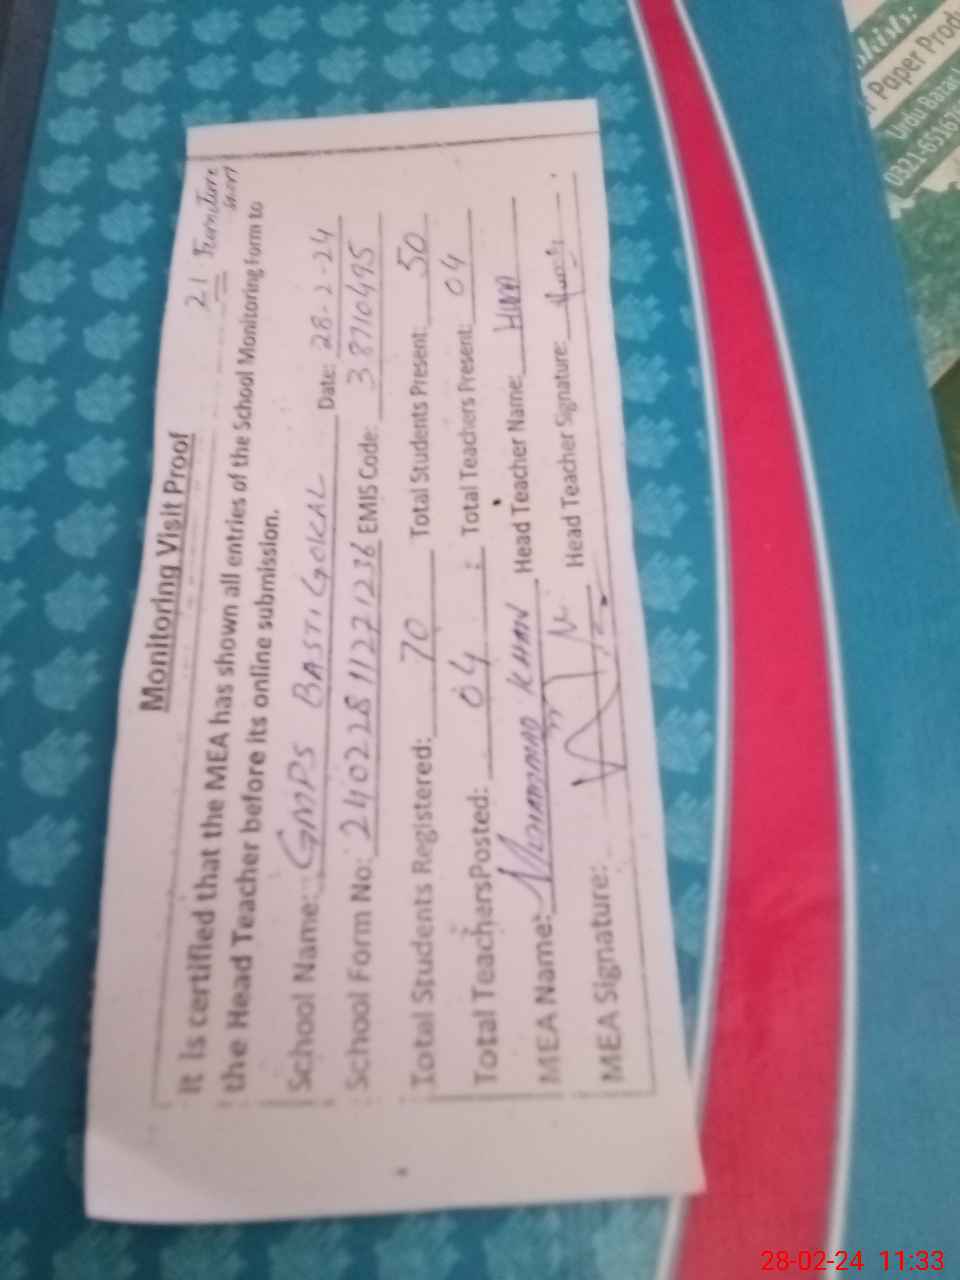 21 Furniture
short
Monitoring Visit Proof
It is certified that the MEA has shown all entries of the School Monitoring Form to
the Head Teacher before its online submission.
School Name: GMPS BASTI GOKAL Date: 28-2-24
School Form No: 24022811271236 EMIS Code: 38710495
Total Students Registered: 70 Total Students Present: 50
Total TeachersPosted: 04 Total Teachers Present: 04
MEA Name: MOHAMMAD KHAN Head Teacher Name: HINA
MEA Signature: Head Teacher Signature:
Paper Prod
Urdu Bazar
0321-65167
28-02-24 11:33